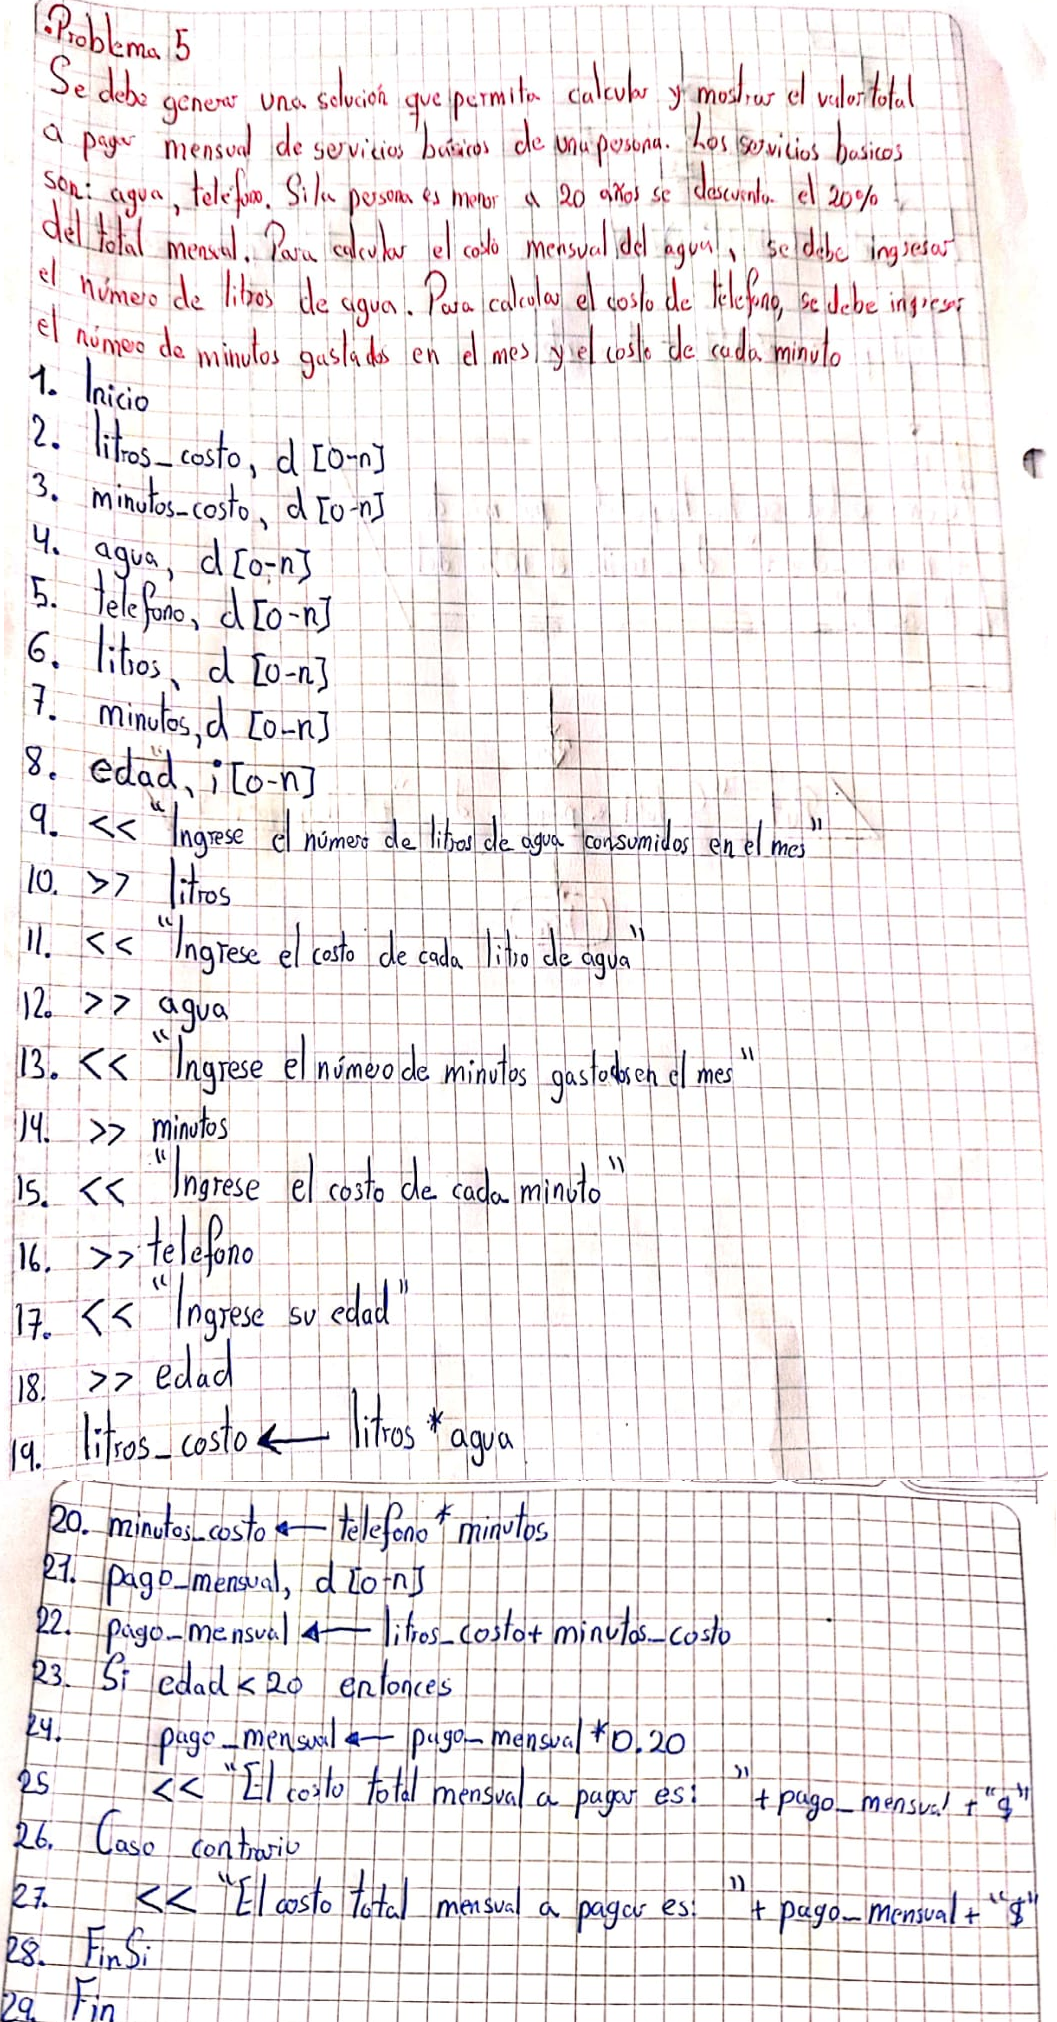 Problema 5
Se debe generar una solución que permita calcular y mostrar el valor total
a pagar mensual de servicios basicos de una persona. Los servicios basicos
son: agua, teléfono. Si la persona es menor a 20 años se descuenta el 20%
del total mensual. Para calcular el costo mensual del agua, se debe ingresar
el número de litros de agua. Para calcular el costo de teléfono, se debe ingresar
el número de minutos gastados en el mes y el costo de cada minuto
1. Inicio
2. litros_costo, d [0-n]
3. minutos_costo, d [0-n]
4. agua, d [0-n]
5. telefono, d [0-n]
6. litros, d [0-n]
7. minutos, d [0-n]
8. edad, i [0-n]
9. << "Ingrese el número de litros de agua consumidos en el mes"
10. >> litros
11. << "Ingrese el costo de cada litro de agua"
12. >> agua
13. << "Ingrese el número de minutos gastados en el mes"
14. >> minutos
15. << "Ingrese el costo de cada minuto"
16. >> telefono
17. << "Ingrese su edad"
18. >> edad
19. litros_costo ← litros * agua
20. minutos_costo ← telefono * minutos
21. pago_mensual, d [0-n]
22. pago_mensual ← litros_costo + minutos_costo
23. Si edad < 20 entonces
24. pago_mensual ← pago_mensual * 0.20
25 << "El costo total mensual a pagar es: " + pago_mensual + "$"
26. Caso contrario
27. << "El costo total mensual a pagar es: " + pago_mensual + "$"
28. FinSi
29. Fin